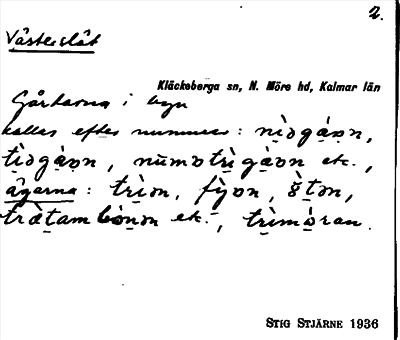 2.
Västerslät
Kläckeberga sn, N. Möre hd, Kalmar län
Gårdarna i byn
kallas efter nummer: nìɔgàɔn,
tìɔgàɔn, nūmɔtrìgàɔn etc.,
ägarna: trìɔn, fỳɔn, s̀̌tɔn,
træ̀tambònɔn etc., trìmòran.
STIG STJÄRNE 1936